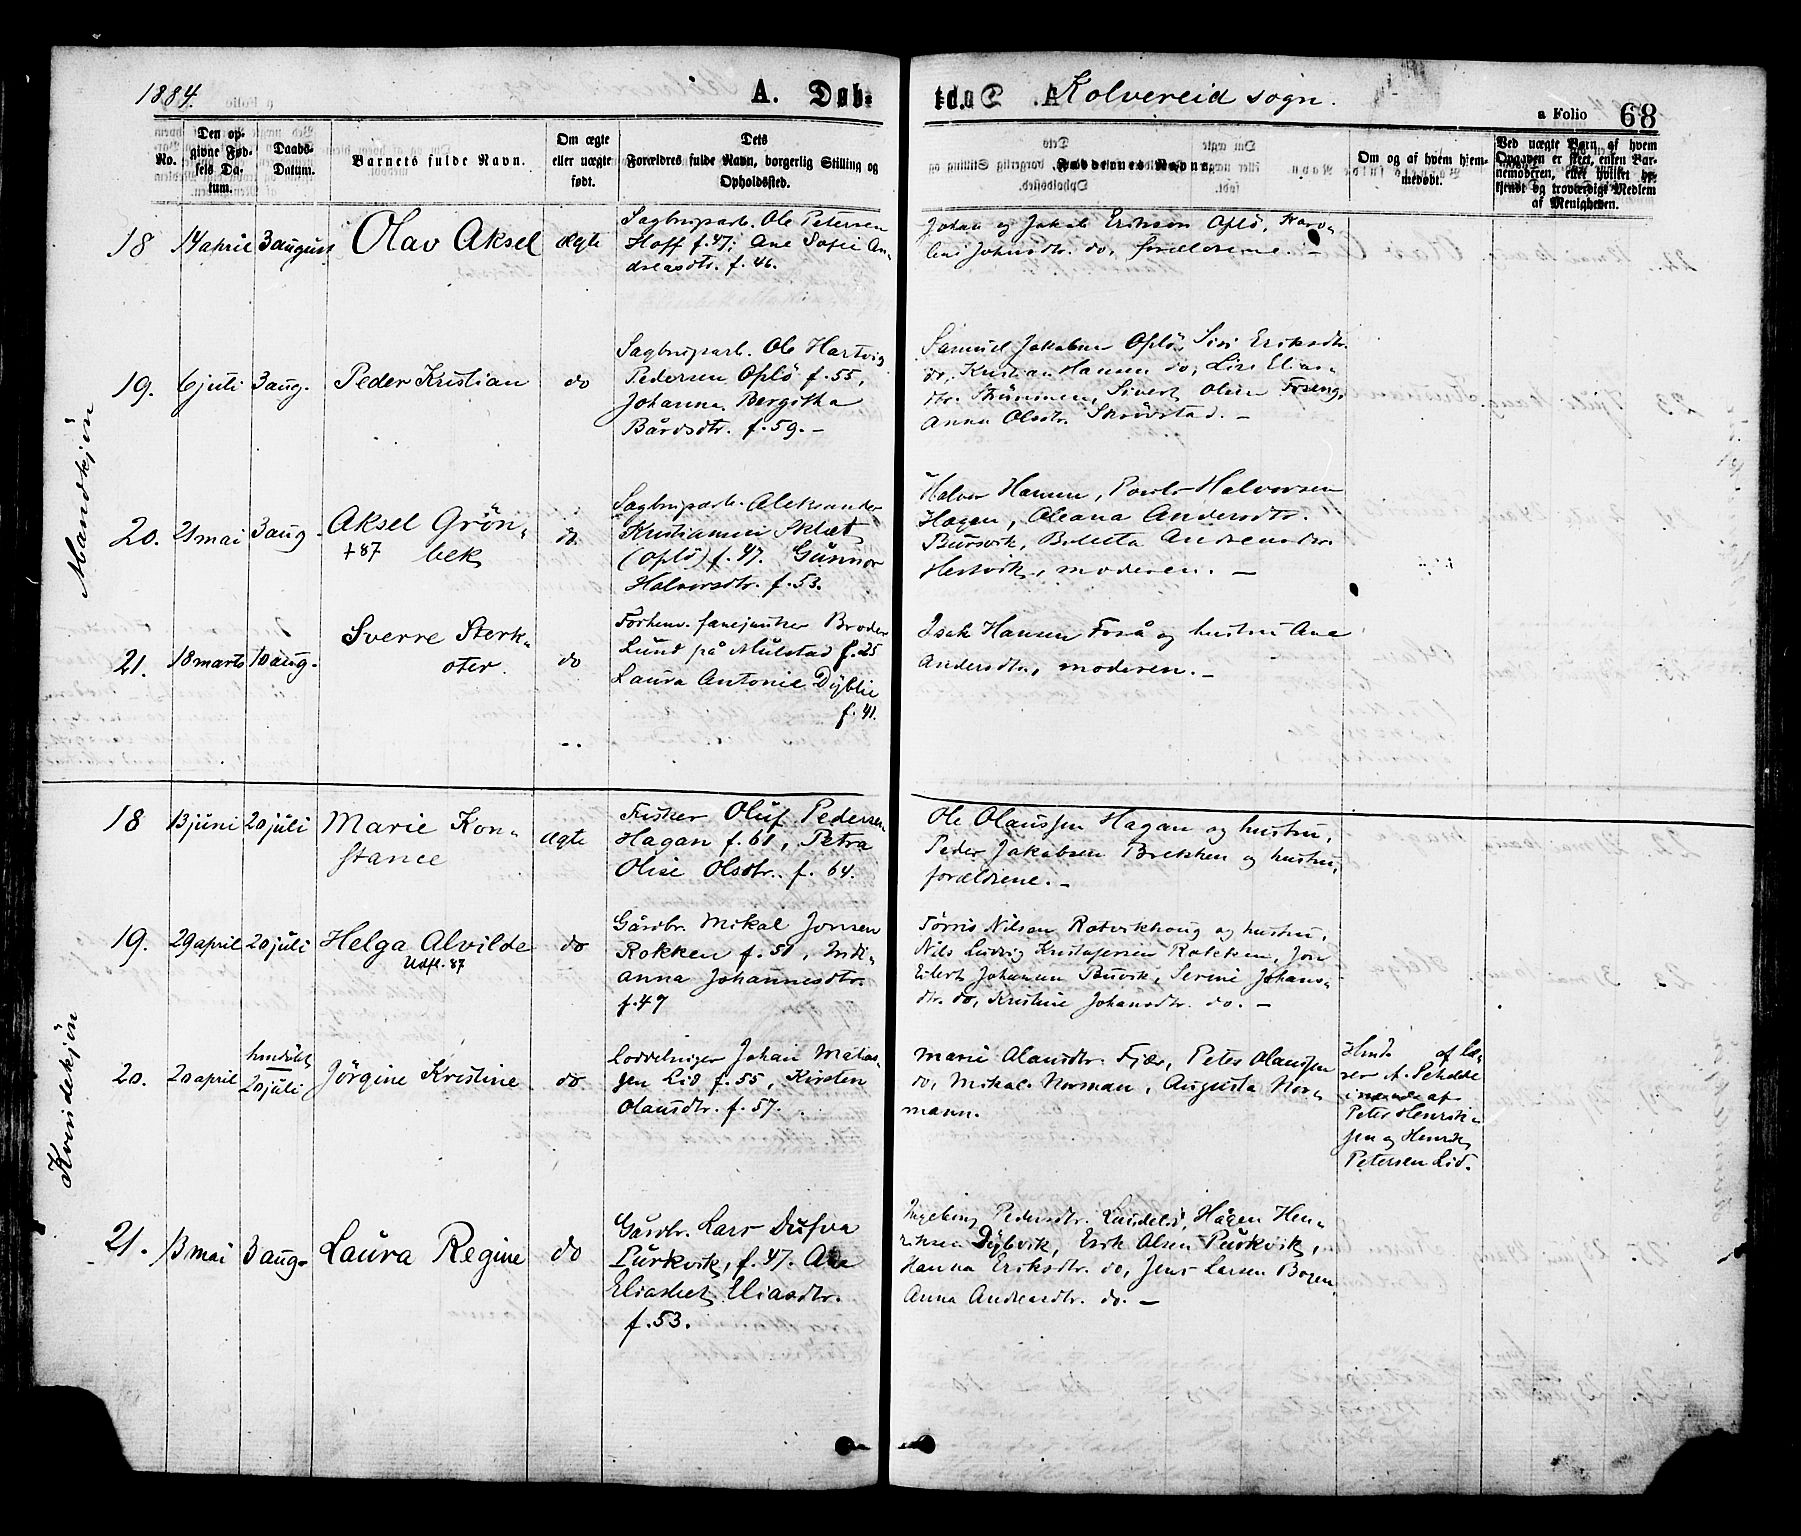 1884.
A. Døb-
Kolvereid sogn.
a Folio 68
No.
Den op-
givne Fød-
sels Da-
tum.
Daabs-
Datum.
Barnets fulde Navn.
Om ægte
eller uægte
født.
Dets
Forældres fulde Navn, borgerlig Stilling og
Opholdssted.
Faddernes Navn.
Om og af hvem hjem-
medøbt.
Ved uægte Børn, af hvem
Opgaven er skeet, enten Bar-
nemoderen, eller hvilket be-
kjendt og troværdigt Medlem
af Menigheden.
Mandskjön
18 14 april 3 august Olav Aksel ægte
Sagbruparb. Ole Petersen
Hoff f. 47. Ane Sofie An-
dreasdtr. f. 46.
Johan og Jakob Erikson Oplö,
Johnsdtr. do, forældrene. -
19. 6 juli 3 aug. Peder Kristian do
Sagbruparb. Ole Hartvig
Pedersen Oplö f. 55,
Johanna Bergitha
Bårdsdtr. f. 59. -
Samuel Jakobsen Oplö, Siri Eriksdtr.
do, Kristian Hansen do, Lise Elias-
dtr. Strömmen, Sivert Olsen Foseng,
Anna Olsdtr. Skrödstad. -
20. 21 mai 3 aug. Aksel Grön-
bek +87 do
Sagbruparb. Aleksander
Kristiansen Sklet
(Oplö) f. 47. Gunnor
Halvorsdtr. f. 53.
Halvor Hansen, Halvorsen
Hagen, Oleana Andersdtr.
Bursvik,
moderen. -
21. 18 marts 10 aug. Sverre Sterk-
oter. do
Forhenv. fanejunker Broder
Lund på Mulstad f. 25
Laura Antonie Dyblie
f. 41.
Isak Hansen Foså og hustru Ane
Andersdtr., moderen. -
Kvindekjön
18 13 juni 20 juli Marie Kon-
stance ægte
Fisker Oluf Pedersen
Hagan f. 61, Petra
Olise Olsdtr. f. 64.
Ole Olaussen Hagan og hustru,
Peder Jakobsen Brekken og hustru,
forældrene. -
19. 29 april 20 juli Helga Alvilde do
Udfl. 87
Gårdbr. Mikal Jonsen
Rokken f. 51, Indi-
anna Johannesdtr.
f. 47
Törris Nilsen Ratvikhaug og hustru,
Nils Ludvig Kristofersen Rokken, Jon
Eilert Johansen Buvik, Serine Johans-
dtr. do, Kristine Johansdtr. do. -
20. 20 april hmdöbt
20 juli Jörgine Kristine do
Johan Matias-
sen Lid f. 55, Kirsten
Olausdtr. f. 57.
Marie Olausdtr. Fjær, Peter Olaussen
do, Mikal Norman, Augusta Nor-
mann.
af Læ-
rer
af
Peter Henrik-
sen og Henrik
Petersen Lid.
21. 13 mai 3 aug. Laura Regine do
Gårdbr. Lars
Purkvik, f. 47. Ane
Eliasdtr.
f. 53.
Ingeborg Pedersdtr. Hågen Hen-
riksen Dybvik, Erik Olsen Purkvik,
Hanna Eriksdtr. do, Jens Larsen Bogen
Anna Andreasdtr. do. -